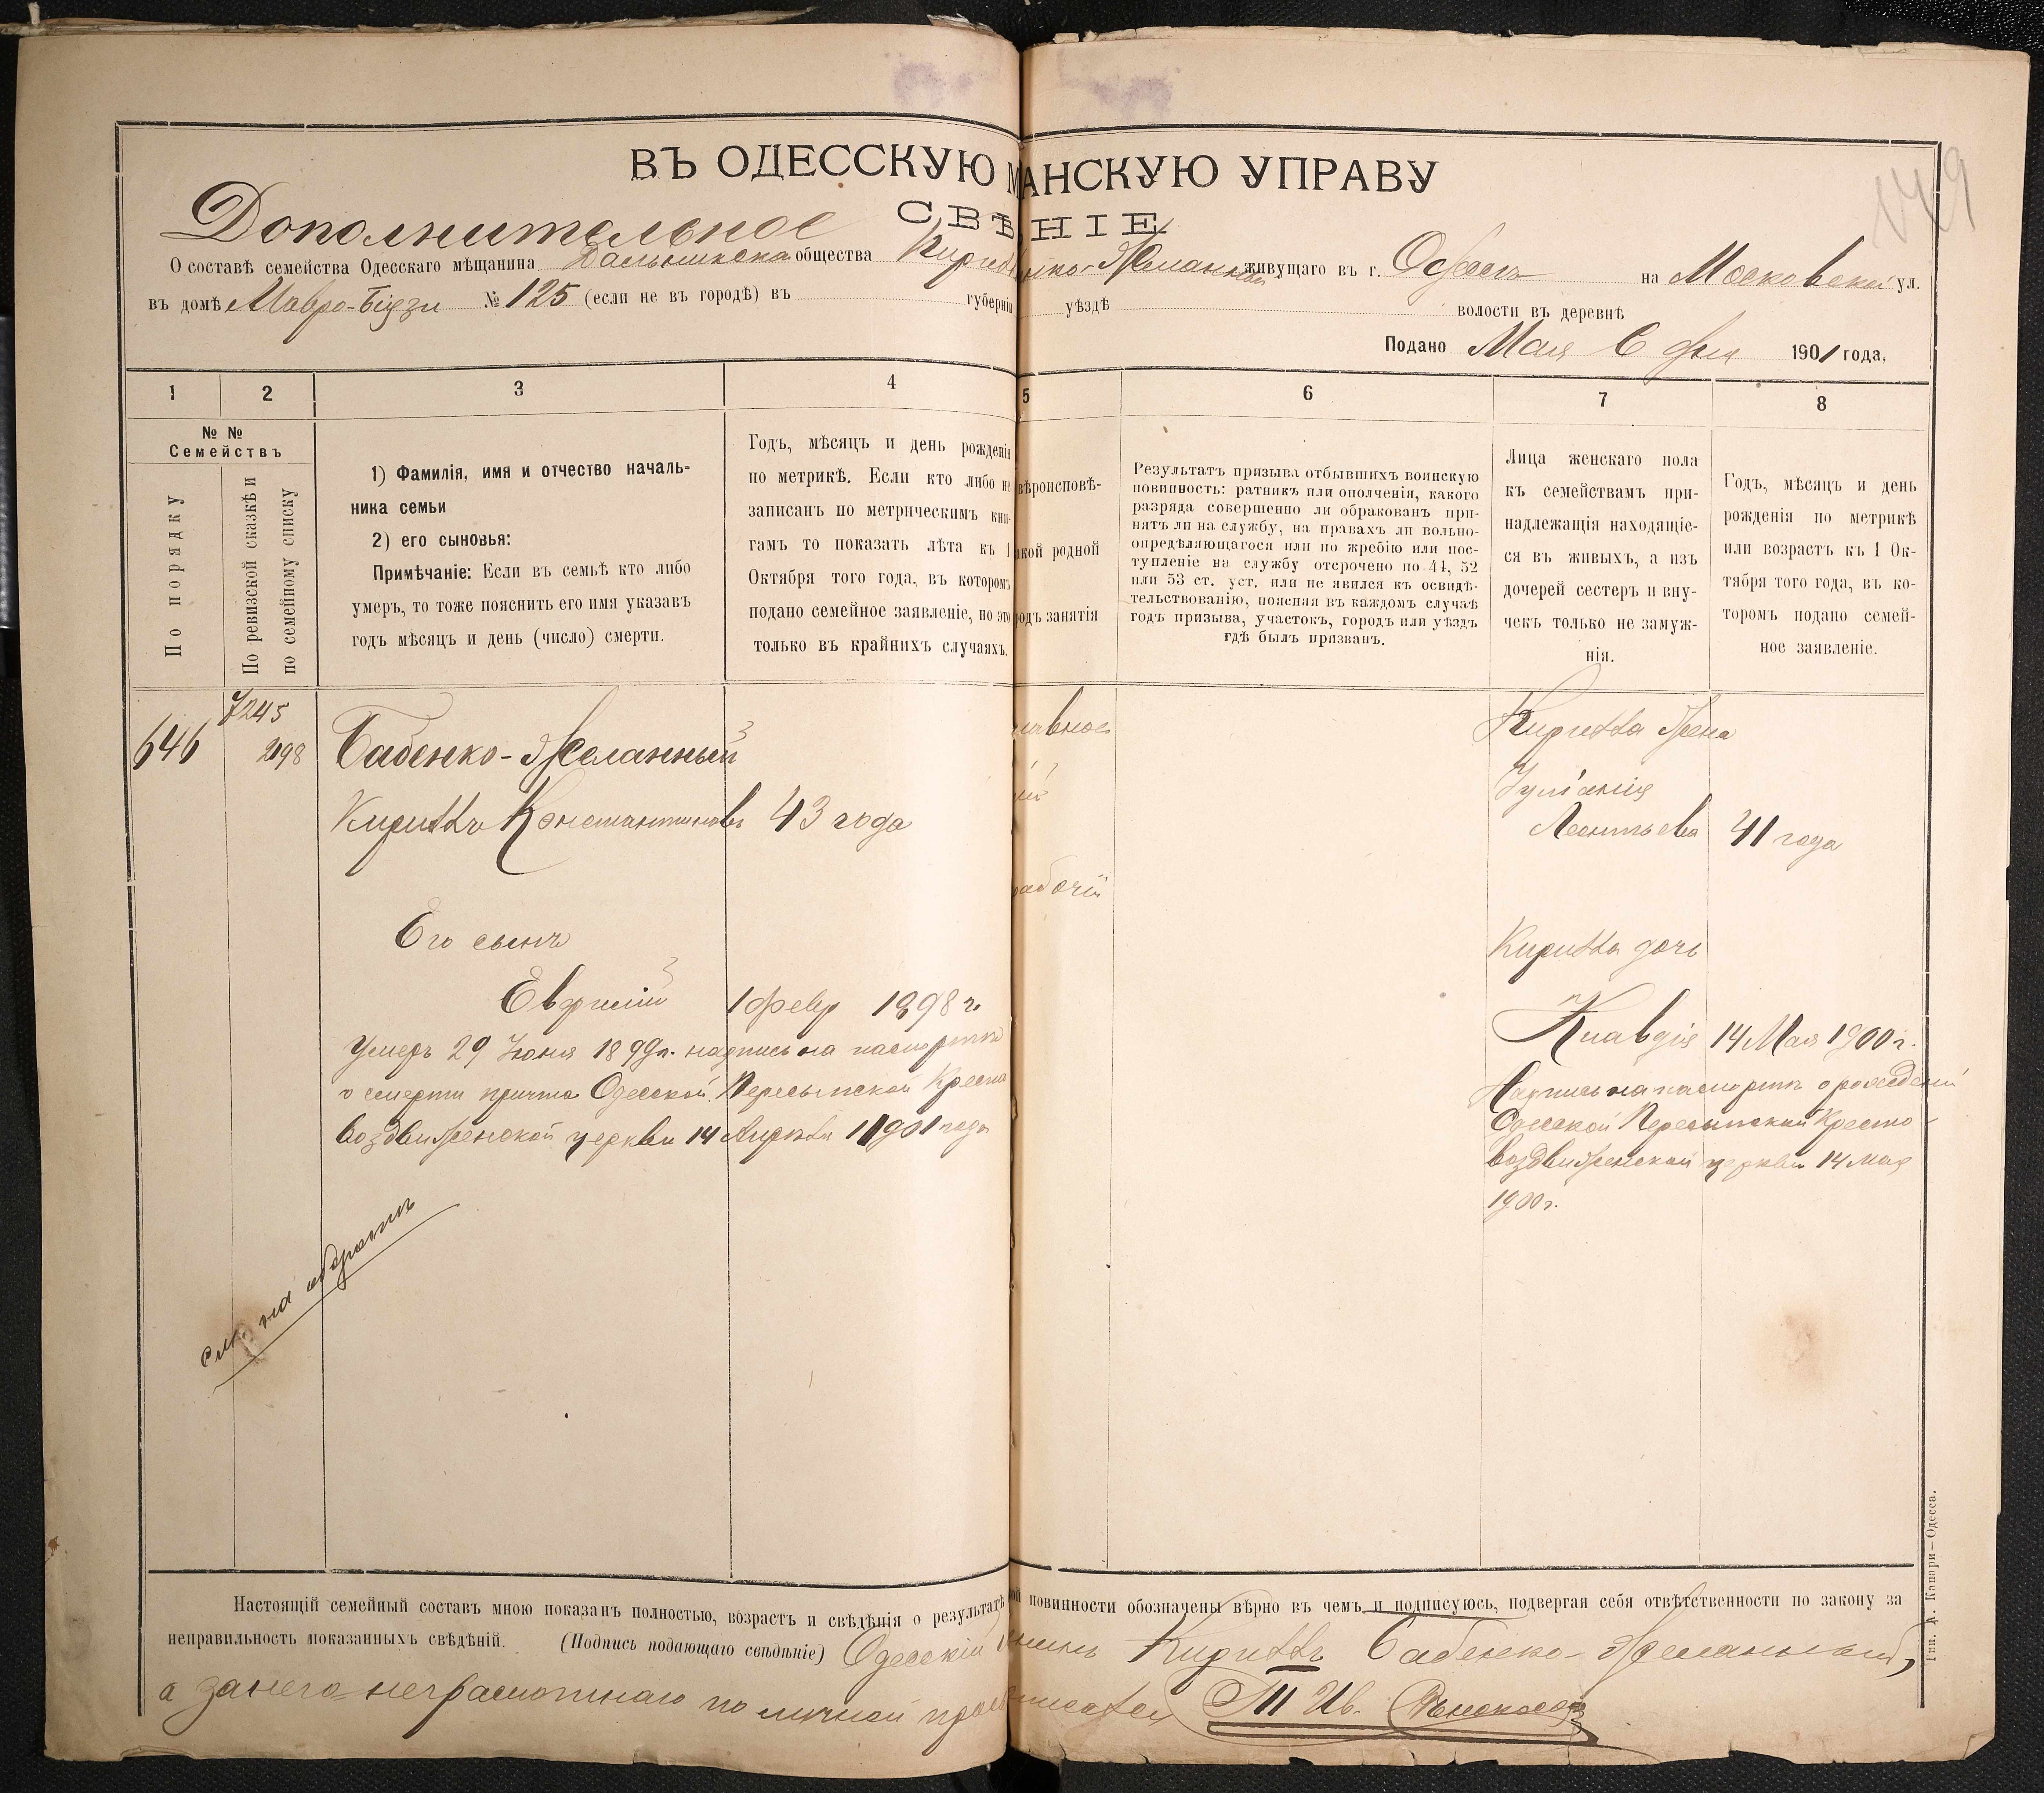 ВЪ ОДЕССКУЮ МАНСКУЮ УПРАВУ
149
Дополнительное СВѢНІЕ
О составѣ семейства Одесскаго мѣщанина Дальницкаго общества Кирилла нко-Желанный живущаго въ г. Одессѣ на Московской ул.
въ домѣ Мавро-Біязи № 125 (если не въ городѣ) въ губерніи уѣздѣ волости въ деревнѣ
Подано Мая 6 дня 1901 года.
1 2 3 4 5 6 7 8
№ № Семействъ
По порядку
По ревизской сказкѣ и по семейному списку
1) Фамилія, имя и отчество началь-
ника семьи
2) его сыновья:
Примѣчаніе: Если въ семьѣ кто либо
умеръ, то тоже пояснить его имя указавъ
годъ мѣсяцъ и день (число) смерти.
Годъ, мѣсяцъ и день рожденія
по метрикѣ. Если кто либо не
записанъ по метрическимъ кни-
гамъ то показать лѣта къ 1
Октября того года, въ которомъ
подано семейное заявленіе, но это
только въ крайнихъ случаяхъ.
вѣроисповѣ-
кой родной
одъ занятія
Результатъ призыва отбывшихъ воинскую
повинность: ратникъ или ополченія, какого
разряда совершенно ли обракованъ при-
нятъ ли на службу, на правахъ ли вольно-
опредѣляющагося или по жребію или пос-
тупленіе на службу отсрочено по 44, 52
или 53 ст. уст. или не явился къ освидѣ-
тельствованію, поясняя въ каждомъ случаѣ
годъ призыва, участокъ, городъ или уѣздъ
гдѣ былъ призванъ.
Лица женскаго пола
къ семействамъ при-
надлежащія находящіе-
ся въ живыхъ, а изъ
дочерей сестеръ и вну-
чекъ только не замуж-
нія.
Годъ, мѣсяцъ и день
рожденія по метрикѣ
или возрастъ къ 1 Ок-
тября того года, въ ко-
торомъ подано семей-
ное заявленіе.
646
7245
298
Бабенко-Желанный
Кириллъ Константиновъ 43 года
Его сынъ
Евфимій 1 февр 1898 г.
Умеръ 29 Іюня 1899 г. надпись на паспортѣ
о смерти причта Одесской Пересыпской Кресто
воздвиженской церкви 14 Апрѣля 1901 года
см. на оборотѣ
авное
ій
рабочій
Кирилла Жена
Іуліанія
Леонтьева 41 года
Кирилла дочь
Клавдія 14 Мая 1900 г.
Надпись на паспортѣ о рожденіи
Одесской Пересыпской Кресто
воздвиженской церкви 14 мая
1900 г.
Настоящій семейный составъ мною показанъ полностью, возрастъ и свѣдѣнія о результатѣ ой повинности обозначены вѣрно въ чемъ и подписуюсь, подвергая себя отвѣтственности по закону за
неправильность показанныхъ свѣдѣній. (Подпись подающаго свѣдѣніе) Одесскій Кириллъ Бабенко-Желанный,
а за него неграмотнаго по личной прос исался Ив.
Тип. А. Капари—Одесса.